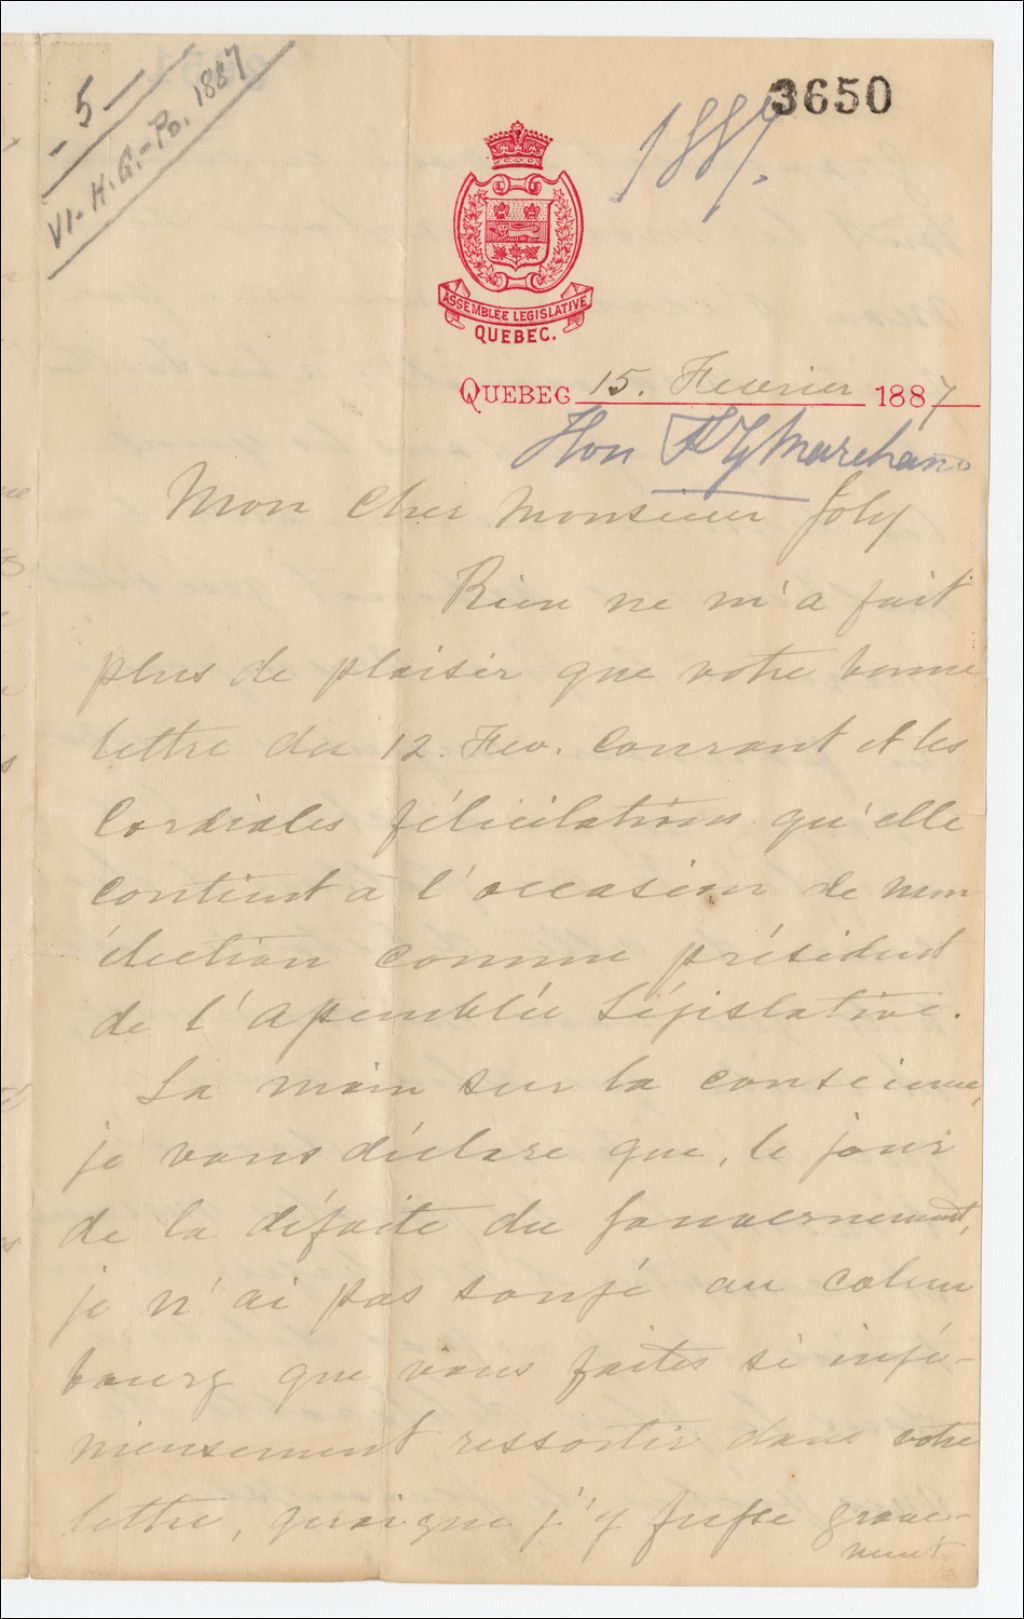 - 5 -
VI-H.G.-Po. 1887
3650
1887.
ASSEMBLEE LEGISLATIVE
QUEBEC.
QUEBEC 15. Fevrier 1887
Hon F G Marchand
Mon Cher Monsieur Joly
Rien ne m'a fait
plus de plaisir que votre bonne
lettre du 12. Fev. courant et les
Cordiales félicitations qu'elle
contient à l'occasion de mon
élection comme président
de l'Assemblée Législative.
La main sur la conscience,
je vous déclare que, le jour
de la défaite du gouvernement,
je n'ai pas songé au calem
bourg que vous faites si ingé-
nieusement ressortir dans votre
lettre, quoique j'y fusse grave-
ment